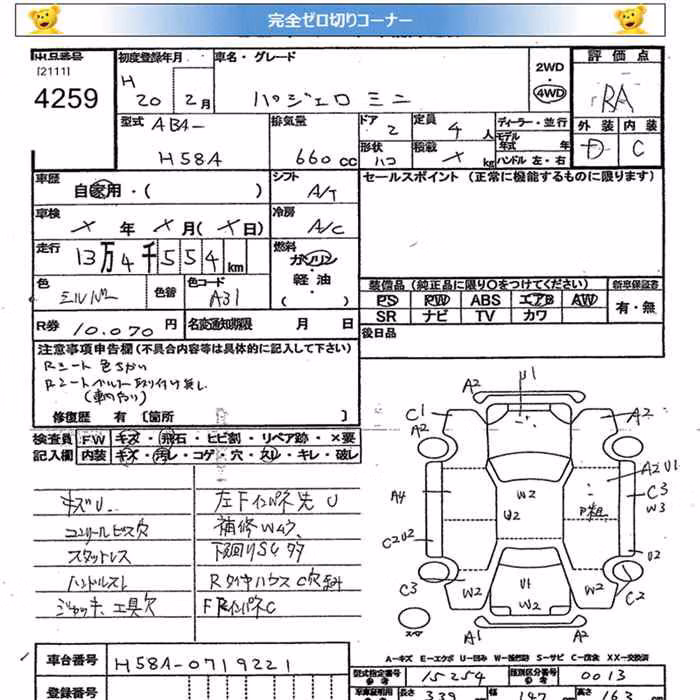 完全ゼロ切りコーナー
出品番号
[2111]
4259
初度登録年月
H 20年 2月
車名・グレード
パジェロミニ
2WD
4WD
評価点
RA
型式
ABA-
H58A
排気量
660cc
ドア
2
定員
4人
ディーラー・並行
モデル
年式 年
形状
ハコ
積載
X kg
ハンドル 左・右
外装
D
内装
C
車歴
自家用・( )
シフト
A/T
セールスポイント (正常に機能するものに限ります)
車検
X年 X月(X日)
冷房
A/C
走行
13万4千554km
燃料
ガソリン
軽油
( )
色
シルバー
色替
色コード
A31
装備品(純正品に限り○をつけてください)
新車保証書
PS PW ABS エアB AW
SR ナビ TV カワ
有・無
R券 10.070円
名変通知期限 月 日
後日品
注意事項申告欄(不具合内容等は具体的に記入して下さい)
Rシート色ちがい
Rシートベルト取り付け無し
(車内有り)
修復歴 有 〔箇所 〕
検査員
記入欄
FW キズ・飛石・ヒビ割・リペア跡・×要
内装 キズ・汚レ・コゲ・穴・スレ・キレ・破レ
キズU
コンソールビス穴
スタットレス
ハンドルスレ
ジャッキ、工具欠
左Fインパネ先U
補修Wムラ
下回りSサタ
RタイヤハウスC穴
FインパネC
U1
A2
C1
A2
A2
A2 U1
C3
W3
A4
W2
U2
C2 U2
U2
C3
W2
U1
W2
W2
C2
スペア
A1
A2
A-キズ E-エクボ U-凹み W-波打跡 S-サビ C-腐食 XX-交換済
車台番号
H58A-0719221
型式指定番号
参考
15254
類別区分番号
参考
0013
登録番号
長さ
339
幅
147
高さ